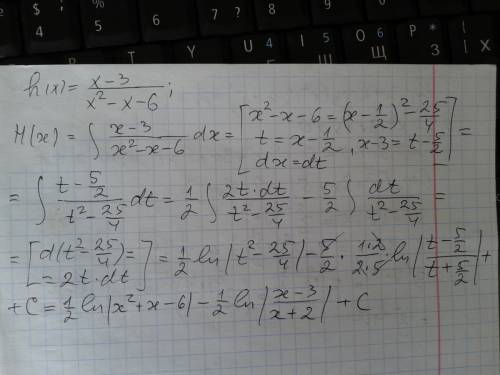 $ ; % 7 ? 8 9
4 5 6
R T Y U 4 I 5 O 6 P * { X
Г Ш Щ З
h(x) = \frac{x-3}{x^2-x-6};
H(x) = \int \frac{x-3}{x^2-x-6} dx = [x^2-x-6 = (x-\frac{1}{2})^2-\frac{25}{4}
t = x-\frac{1}{2}, x-3 = t-\frac{5}{2}
dx = dt] =
= \int \frac{t-\frac{5}{2}}{t^2-\frac{25}{4}} dt = \frac{1}{2} \int \frac{2t \cdot dt}{t^2-\frac{25}{4}} - \frac{5}{2} \int \frac{dt}{t^2-\frac{25}{4}} =
= [d(t^2-\frac{25}{4}) = = 2t \cdot dt] = \frac{1}{2} ln|t^2-\frac{25}{4}| - \frac{5}{2} \cdot \frac{1 \cdot 2}{2 \cdot 5} ln|\frac{t-\frac{5}{2}}{t+\frac{5}{2}}| +
+ C = \frac{1}{2} ln|x^2+x-6| - \frac{1}{2} ln|\frac{x-3}{x+2}| + C